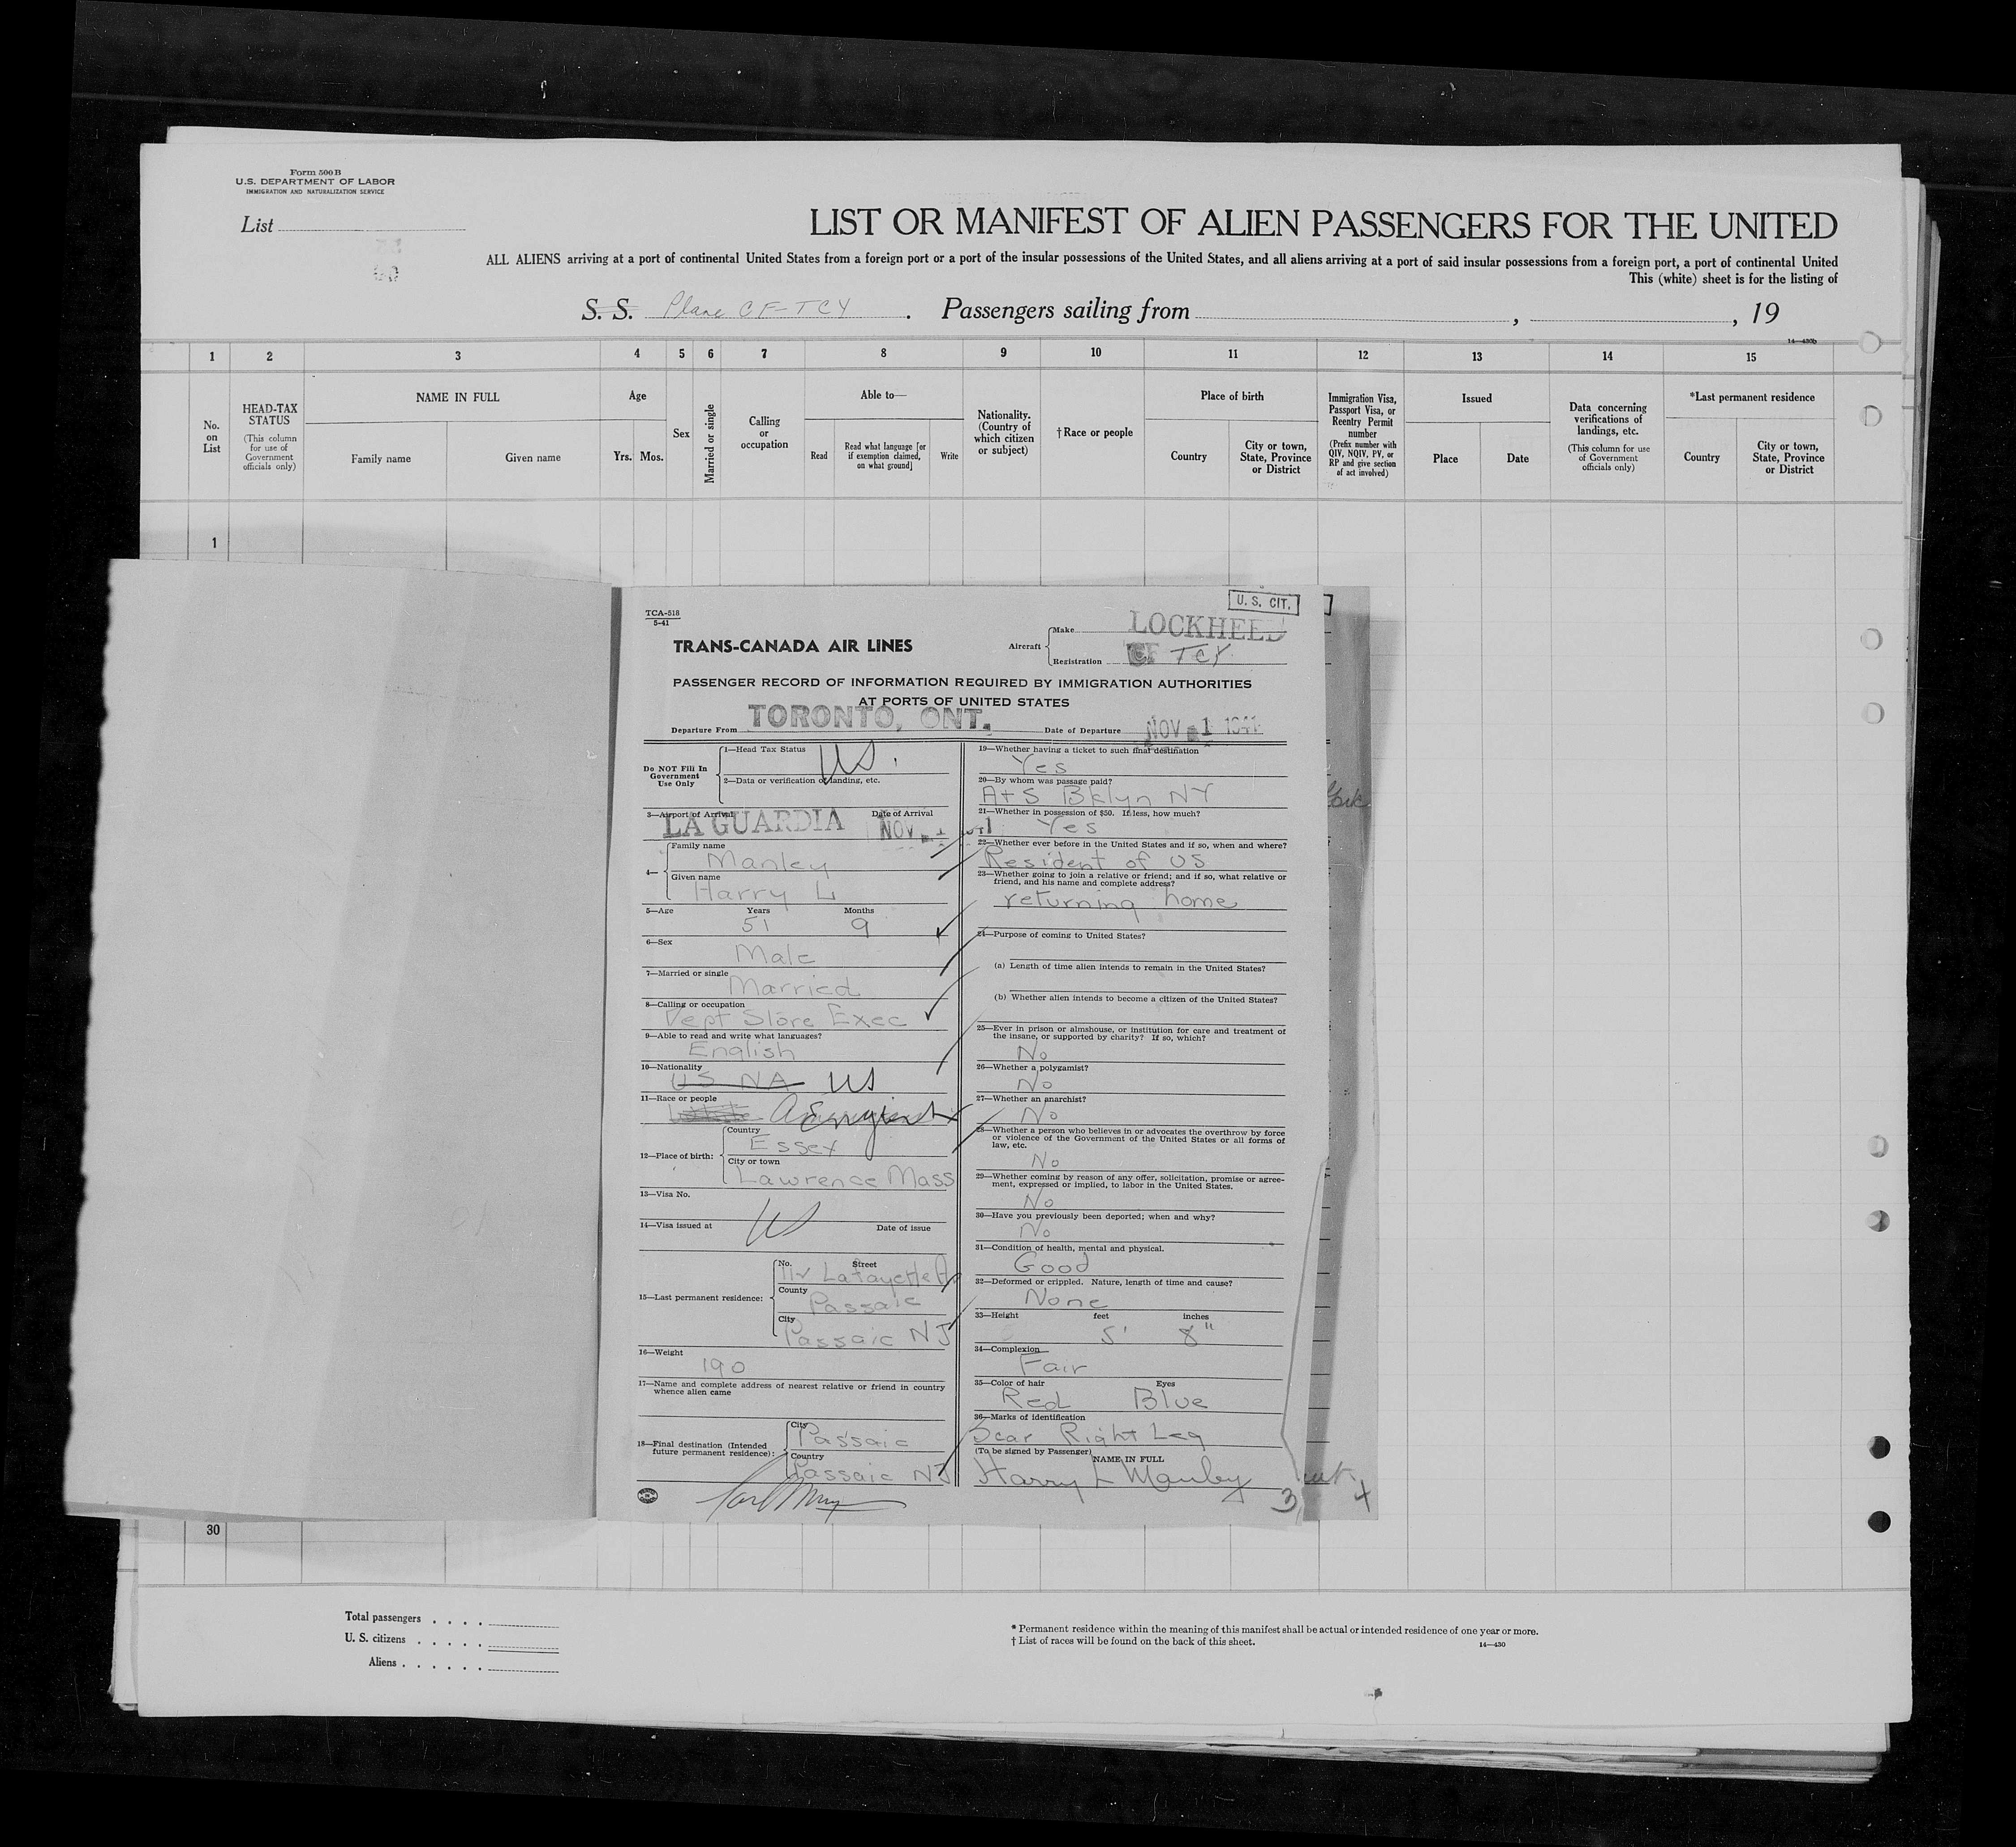 Form 500 B
U.S. DEPARTMENT OF LABOR
IMMIGRATION AND NATURALIZATION SERVICE
List
LIST OR MANIFEST OF ALIEN PASSENGERS FOR THE UNITED
ALL ALIENS arriving at a port of continental United States from a foreign port or a port of the insular possessions of the United States, and all aliens arriving at a port of said insular possessions from a foreign port, a port of continental United
This (white) sheet is for the listing of
S. S. Plane CF-TCY . Passengers sailing from , , 19
14—430b
1 2 3 4 5 6 7 8 9 10 11 12 13 14 15
No. on List
HEAD-TAX STATUS
(This column for use of Government officials only)
NAME IN FULL
Family name
Given name
Age
Yrs. Mos.
Sex
Married or single
Calling or occupation
Able to—
Read
Read what language [or if exemption claimed, on what ground]
Write
Nationality. (Country of which citizen or subject)
†Race or people
Place of birth
Country
City or town, State, Province or District
Immigration Visa, Passport Visa, or Reentry Permit number
(Prefix number with QIV, NQIV, PV, or RP and give section of act involved)
Issued
Place
Date
Data concerning verifications of landings, etc.
(This column for use of Government officials only)
*Last permanent residence
Country
City or town, State, Province or District
1
U. S. CIT.
TCA-518
5-41
TRANS-CANADA AIR LINES
Aircraft
Make LOCKHEED
Registration CF TCY
PASSENGER RECORD OF INFORMATION REQUIRED BY IMMIGRATION AUTHORITIES
AT PORTS OF UNITED STATES
Departure From TORONTO, ONT. Date of Departure NOV 1 1941
Do NOT Fill In Government Use Only
1—Head Tax Status US.
2—Data or verification of landing, etc.
3—Airport of Arrival LA GUARDIA Date of Arrival NOV 1
4—
Family name Manley
Given name Harry L
5—Age Years 51 Months 9
6—Sex Male
7—Married or single Married
8—Calling or occupation
Dept Store Exec
9—Able to read and write what languages?
English
10—Nationality
US NA US
11—Race or people
12—Place of birth:
Country Essex
City or town Lawrence Mass
13—Visa No.
14—Visa issued at US Date of issue
15—Last permanent residence:
No. Street
Lafayette
County Passaic
City Passaic NJ
16—Weight 190
17—Name and complete address of nearest relative or friend in country
whence alien came
18—Final destination (Intended future permanent residence):
City Passaic
Country Passaic NJ
19—Whether having a ticket to such final destination
Yes
20—By whom was passage paid?
A+S Bklyn NY
21—Whether in possession of $50. If less, how much?
Yes
22—Whether ever before in the United States and if so, when and where?
Resident of US
23—Whether going to join a relative or friend; and if so, what relative or
friend, and his name and complete address?
returning home
24—Purpose of coming to United States?
(a) Length of time alien intends to remain in the United States?
(b) Whether alien intends to become a citizen of the United States?
25—Ever in prison or almshouse, or institution for care and treatment of
the insane, or supported by charity? If so, which?
No
26—Whether a polygamist?
No
27—Whether an anarchist?
No
28—Whether a person who believes in or advocates the overthrow by force
or violence of the Government of the United States or all forms of
law, etc.
No
29—Whether coming by reason of any offer, solicitation, promise or agree-
ment, expressed or implied, to labor in the United States.
No
30—Have you previously been deported; when and why?
No
31—Condition of health, mental and physical.
Good
32—Deformed or crippled. Nature, length of time and cause?
None
33—Height feet inches
5' 8"
34—Complexion
Fair
35—Color of hair Eyes
Red Blue
36—Marks of identification
Scar Right Leg
(To be signed by Passenger) NAME IN FULL
Harry L Manley
3
30
Total passengers
U. S. citizens
Aliens
* Permanent residence within the meaning of this manifest shall be actual or intended residence of one year or more.
† List of races will be found on the back of this sheet.
14—430